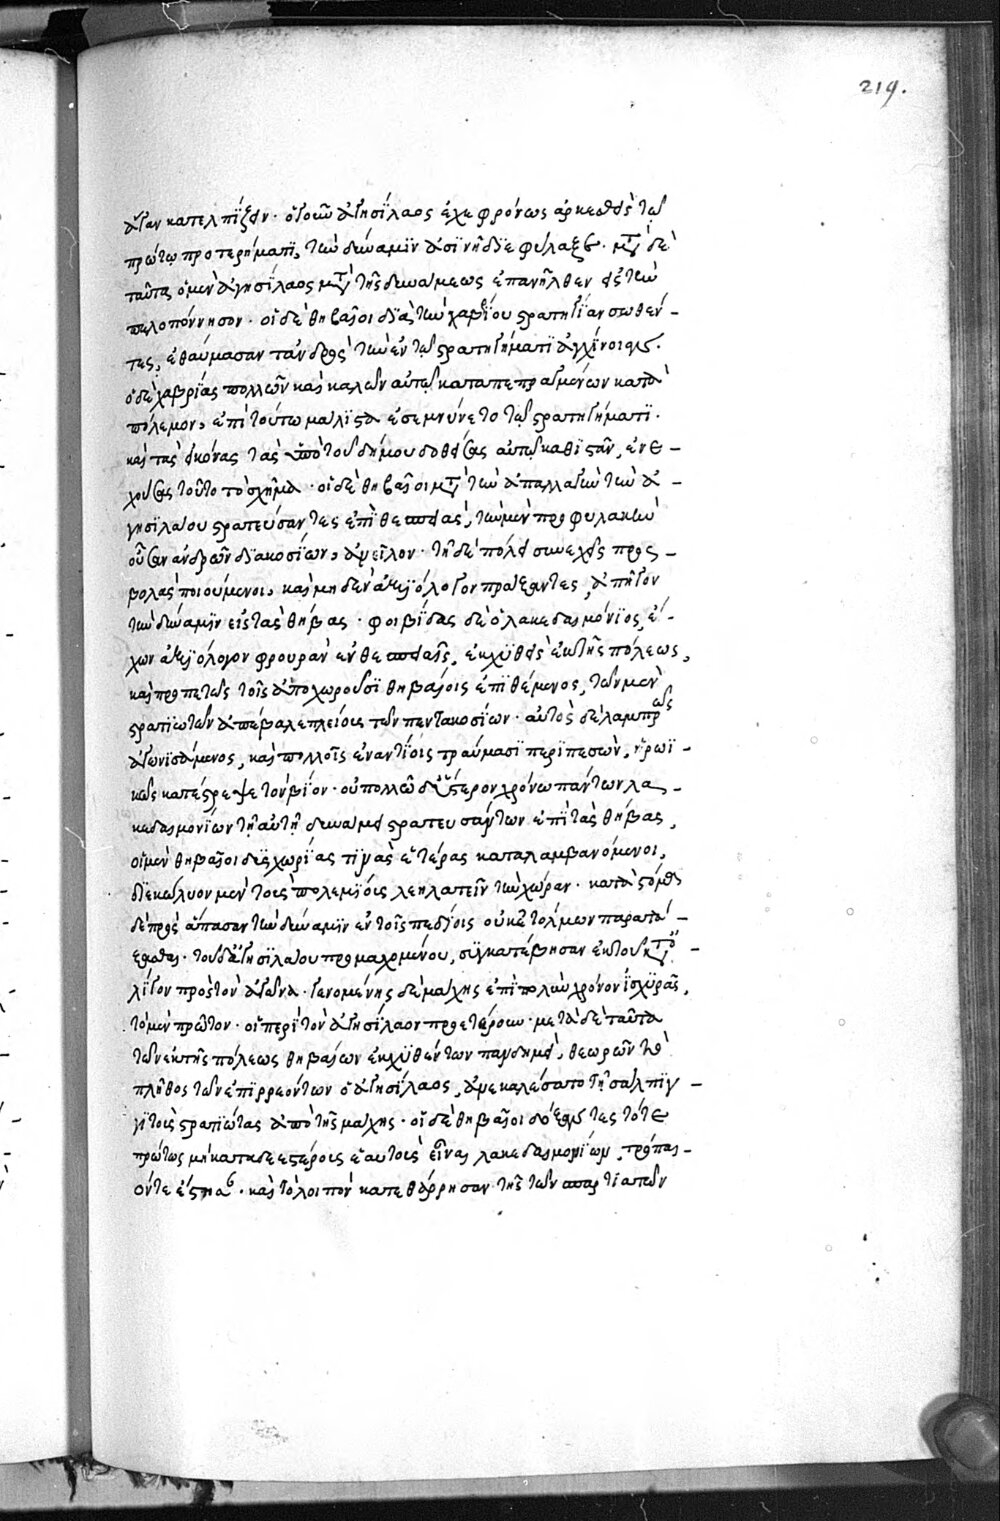 219.
ἄγαν κατελπίζειν· ὁ γοῦν ἀγησίλαος ἐχεφρόνως ἀρκεσθεὶς τῶ
πρώτω προτερήματι, τὴν δύναμιν ἀσινῆ διεφύλαξε· μετὰ δὲ
ταῦτα ὁ μὲν ἀγησίλαος μετὰ τῆς δυνάμεως ἐπανῆλθεν εἰς τὴν
πελοπόννησον· οἱ δὲ θηβαῖοι διὰ τὴν χαβρίου στρατηγίαν σωθέν-
τες, ἐθαύμασαν τἀνδρὸς τὴν ἐν τῶ στρατηγήματι ἀγχίνοιαν.
ὁ δὲ χαβρίας πολλῶν καὶ καλῶν αὐτῶ καταπεπραγμένων κατὰ
πόλεμον, ἐπὶ τούτω μάλιστα ἐσεμνύνετο τῶ στρατηγήματι·
καὶ τὰς εἰκόνας τὰς ὑπὸ τοῦ δήμου δοθείσας αὐτῶ καθιστᾶν, ἐνε-
χούσας τοῦτο τὸ σχῆμα· οἱ δὲ θηβαῖοι μετὰ τὴν ἀπαλλαγὴν τὴν ἀ-
γησιλάου στρατεύσαντες ἐπὶ θεσπιὰς, τὴν μὲν προφυλακὴν
οὖσαν ἀνδρῶν διακοσίων, ἀνεῖλον· τῆ δὲ πόλει συνεχεῖς προς-
βολὰς ποιούμενοι, καὶ μηδὲν ἀξιόλογον πράξαντες, ἀπῆγον
τὴν δύναμιν εἰς τὰς θήβας· φοιβίδας δὲ ὁ λακεδαιμόνιος, ἔ-
χων ἀξιόλογον φρουρὰν ἐν θεσπιαῖς, ἐκχυθεὶς ἐκ τῆς πόλεως,
καὶ προπετῶς τοῖς ἀποχωροῦσι θηβαίοις ἐπιθέμενος, τῶν μὲν
στρατιωτῶν ἀπέβαλε πλείους τῶν πεντακοσίων· αὐτὸς δὲ λαμπρῶς
ἀγωνισάμενος, καὶ πολλοῖς ἐναντίοις τραύμασι περιπεσὼν, ἡρωϊ-
κῶς κατέστρεψε τὸν βίον· οὐ πολλῶ δ' ὕστερον χρόνω πάντων λα-
κεδαιμονίων τῆ αὐτῆ δυνάμει στρατευσάντων ἐπὶ τὰς θήβας,
οἱ μὲν θηβαῖοι δυσχωρίας τινὰς ἑτέρας καταλαμβανόμενοι,
διεκώλυον μὲν τοὺς πολεμίους λεηλατεῖν τὴν χώραν· κατὰ στόμα
δὲ πρὸς ἅπασαν τὴν δύναμιν ἐν τοῖς πεδίοις οὐκ ἐτόλμων παρατά-
ξασθαι· τοῦ δ' ἀγησιλάου προμαχομένου, συγκατέβησαν ἐκ τοῦ κατ'
λίγον πρὸς τὸν ἀγῶνα· γενομένης δὲ μάχης ἐπὶ πολὺν χρόνον ἰσχυρᾶς,
τὸ μὲν πρῶτον· οἱ περὶ τὸν ἀγησίλαον προετέρουν· μετὰ δὲ ταῦτα
τῶν ἐκ τῆς πόλεως θηβαίων ἐκχυθέντων πανδημεὶ, θεωρῶν τὸ
πλῆθος τῶν ἐπιρρεόντων ὁ ἀγησίλαος, ἀνεκαλέσατο τῆ σάλπιγ-
γι τοὺς στρατιώτας ἀπὸ τῆς μάχης· οἱ δὲ θηβαῖοι δόξαντες τότε
πρώτως μὴ καταδεεστέρους ἑαυτοὺς εἶναι λακεδαιμονίων, τρόπαι-
όν τε ἔστησαν· καὶ τὸ λοιπὸν κατεθάρρησαν τῆς τῶν σπαρτιατῶν